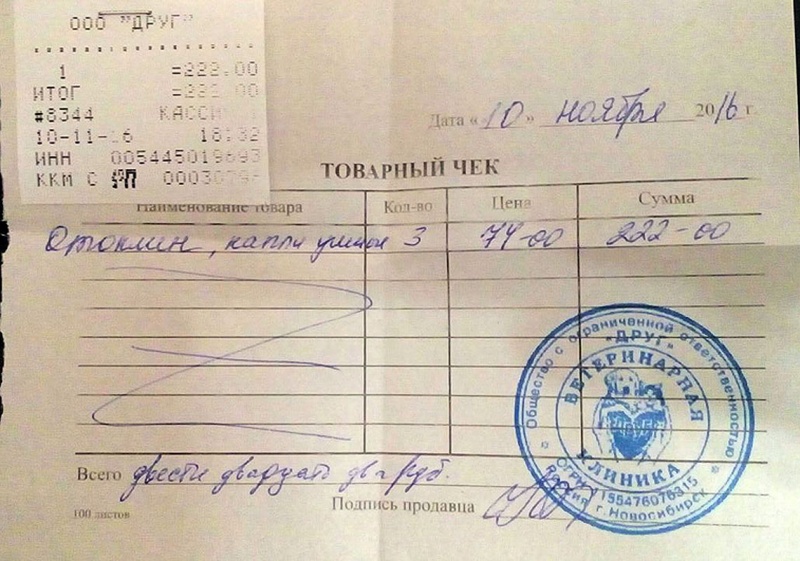 ООО "ДРУГ"
1 =222.00
ИТОГ =222.00
#8344 КАССИ 1
10-11-16 18:32
ИНН 005445019693
ККМ С
Дата «10» ноября 2016 г.
ТОВАРНЫЙ ЧЕК
Наименование товара Кол-во Цена Сумма
Отоклин, капли ушные 3 74-00 222-00
Всего двести двадцать два руб.
100 листов
Подпись продавца
Общество с ограниченной ответственностью
"ДРУГ"
ВЕТЕРИНАРНАЯ
КЛИНИКА
Россия г. Новосибирск